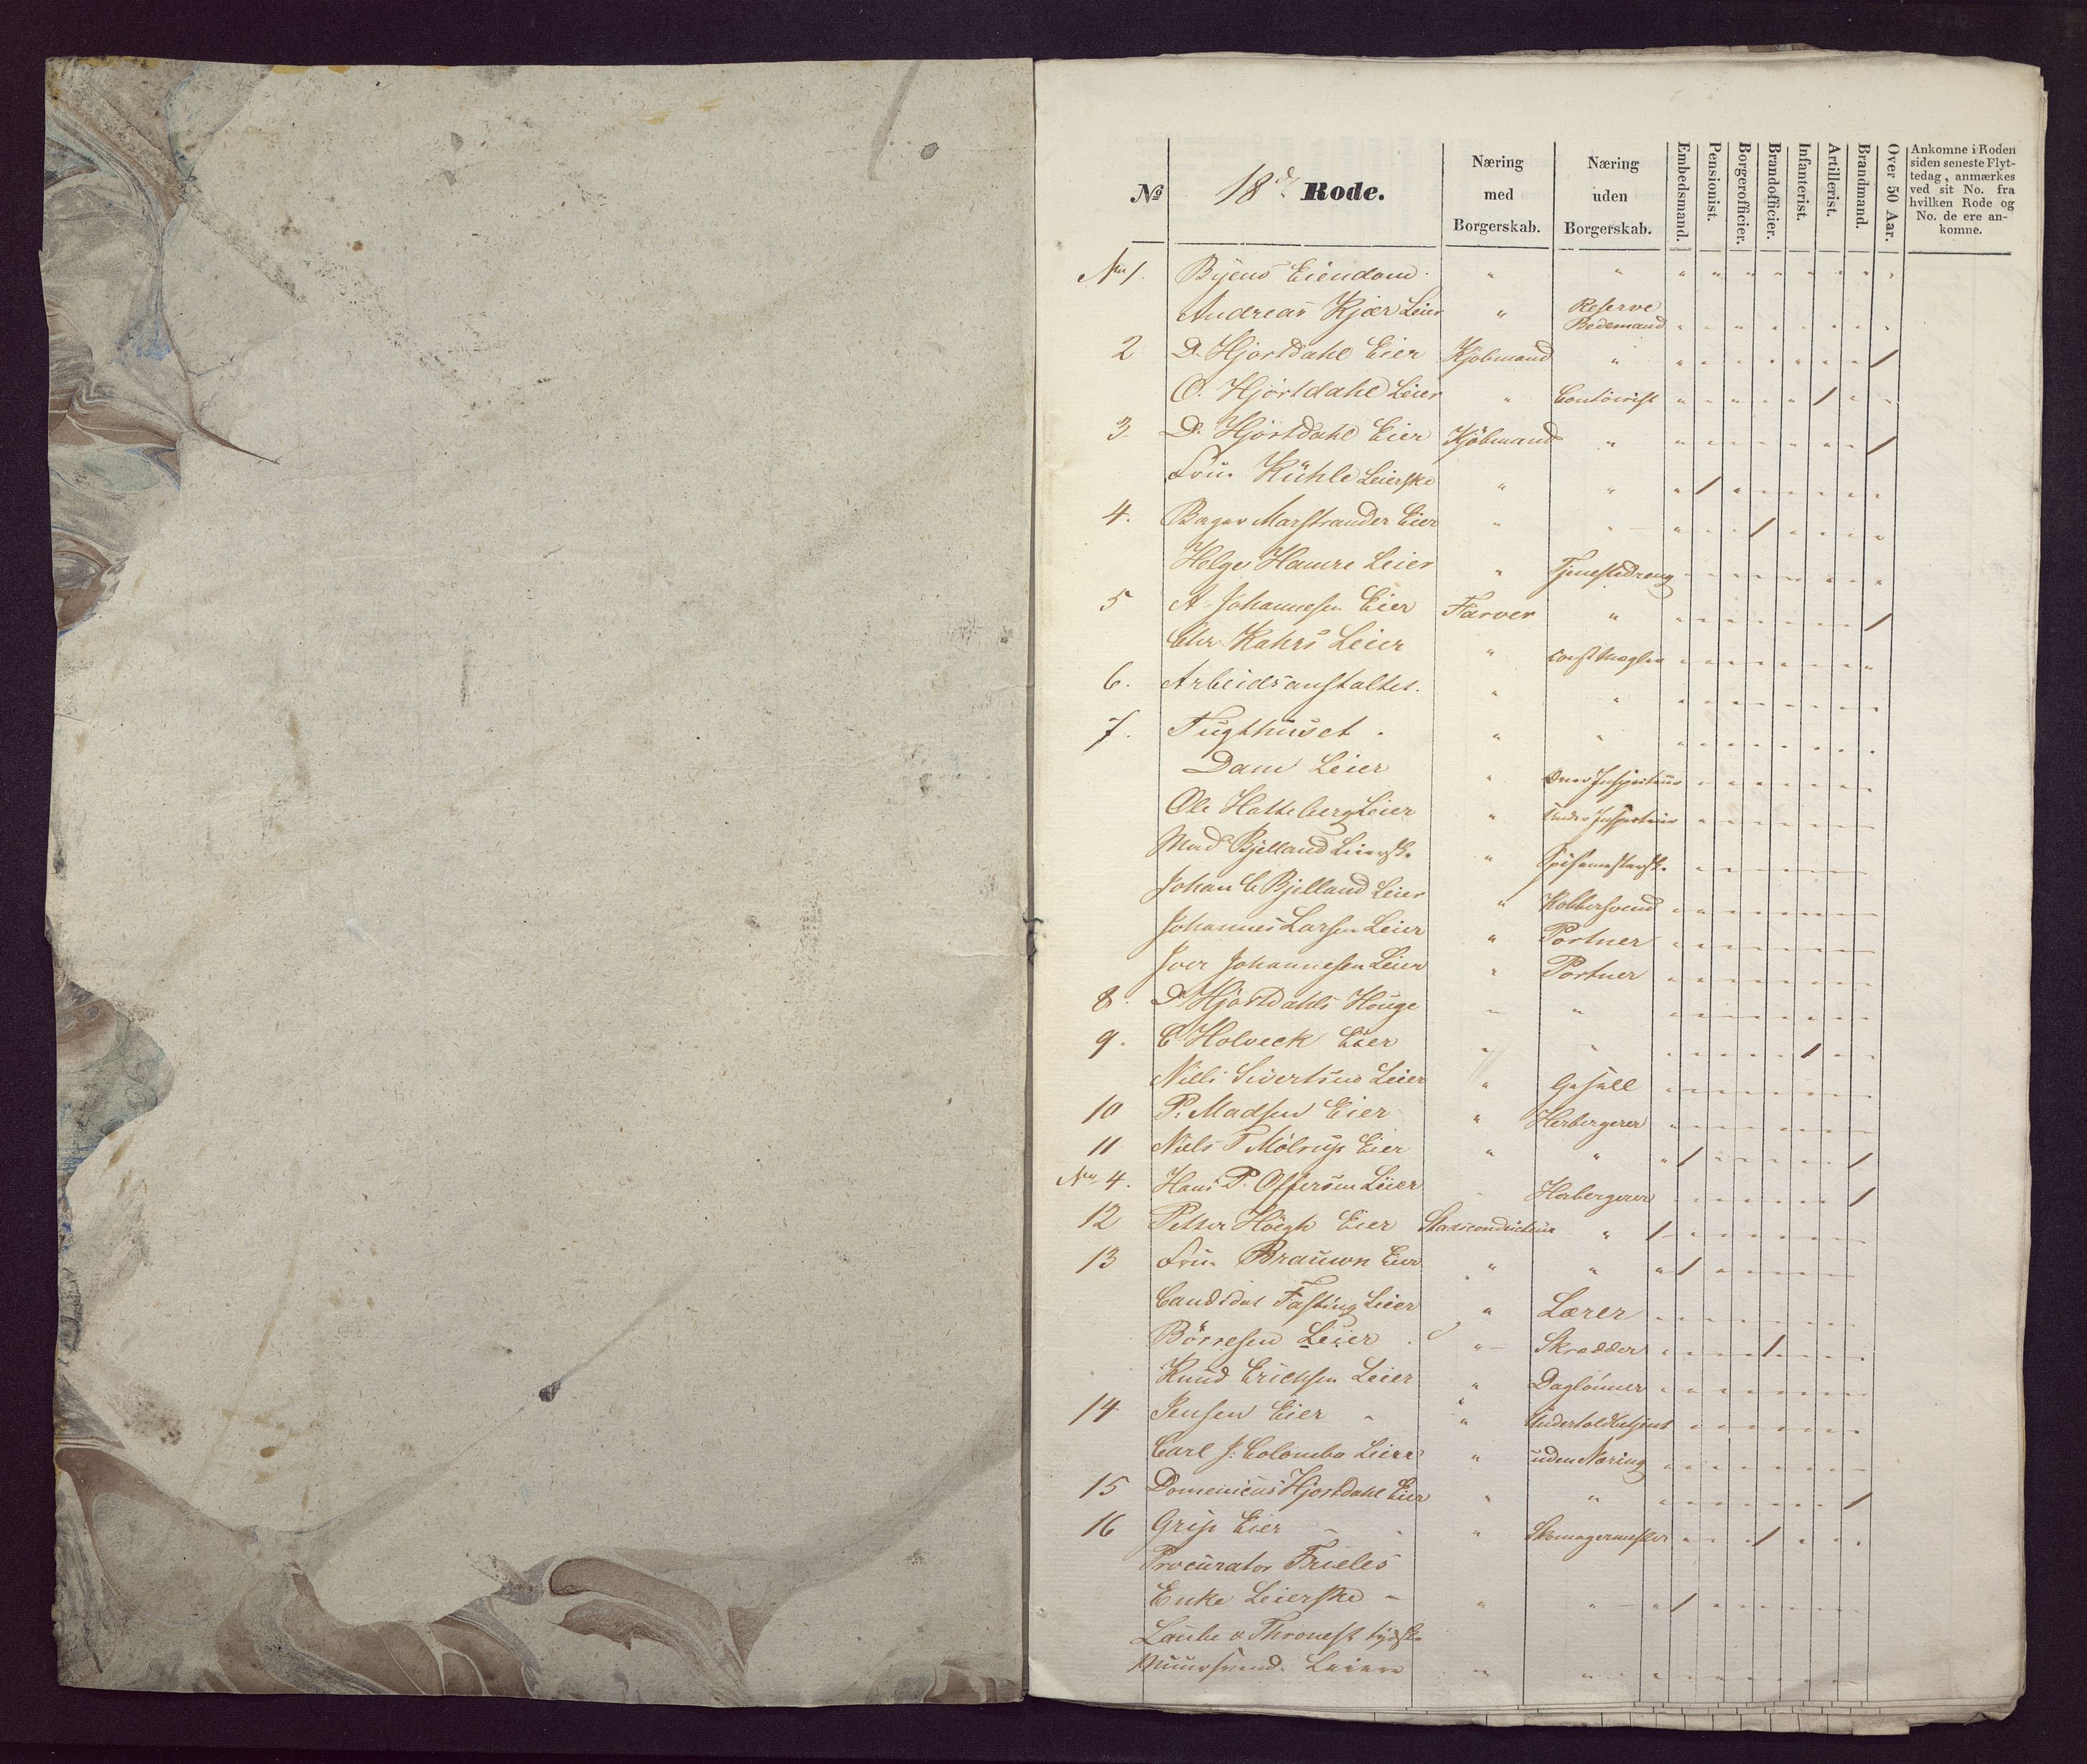 № 18de Rode. Næring med Borgerskab. Næring uden Borgerskab. Embedsmand. Pensionist. Borgerofficier. Brandofficier. Infanterist. Artillerist. Brandmand. Over 50 Aar. Ankomne i Roden siden seneste Flyttedag, anmærkes ved sit No. fra hvilken Rode og No. de ere ankomne.
No 1. Byens Eiendom " " " " " " " " " "
Andreas Kjær Leier " Reserve Bedemand " " " " " " " "
2 D. Hjortdahl Eier Kjöbmand " " " " " " " " /
O. Hjortdahl Leier " Contöirist " " " " " / " "
3 D. Hjortdahl Eier Kjöbmand " " " " " " " " /
Fru Kühle Leierske " " " / " " " " " "
4. Bager Marstrander Eier " " " " " / " " " "
Helge Hamre Leier " Tjenestedreng " " " " " " " "
5 A. Johannesen Eier Farver " " " " " " " " /
Chr. Kahrs Leier " const Mægler " " " " " " " "
6. Arbeidsanstalten. " " " " " " " " " "
7. Tugthuset. " " " " " " " " " "
Dam Leier " Over Inspecteur " " " " " " " "
Ole Hatteberg Leier " Under Inspecteur " " " " " " " "
Mad Bjelland Leiersk. " Spisemestersk. " " " " " " " "
Johan C Bjelland Leier " Kobbersvend " " " " " " " "
Johannes Larsen Leier " Portner " " " " " " " "
Iver Johannesen Leier " Portner " " " " " " " "
8. D Hjortdahls Houge " " " " " " " " " "
9. C Holveck Eier " " " " " " " / " "
Nills Sivertsen Leier " Gesell " " " " " " " "
10 P. Madsen Eier " Herbergerer " " " " " " " "
11 Niels T Mölrup Eier " " " / " " " " " /
No 4. Hans P. Offersen Leier " Herbergerer " " " " " " " /
12 Petter Höegh Eier Stadsconducteur " / " " " " " " "
13 Fru Brauwn Eier " " " / " " " " " "
Candidat Fasting Leier " Lærer " " " " " " " "
Börresen Leier " Skrædder " " " " / " " "
Knud Ericksen Leier " Daglönner " " " " " " " "
14 Jensen Eier " Undertoldbetjent " " " " " " " "
Carl J: Colombo Leier " uden Næring " " " " " " " "
15 Domenicus Hjortdahl Eier " " " " " " " " " /
16 Grip Eier " Skomagermester " " " " / " " "
Procurator Frieles
Enke Leierske " " " / " " " " " "
Laube & Thronest tydske
Muursvend. Leiere " " " " " " " " " "